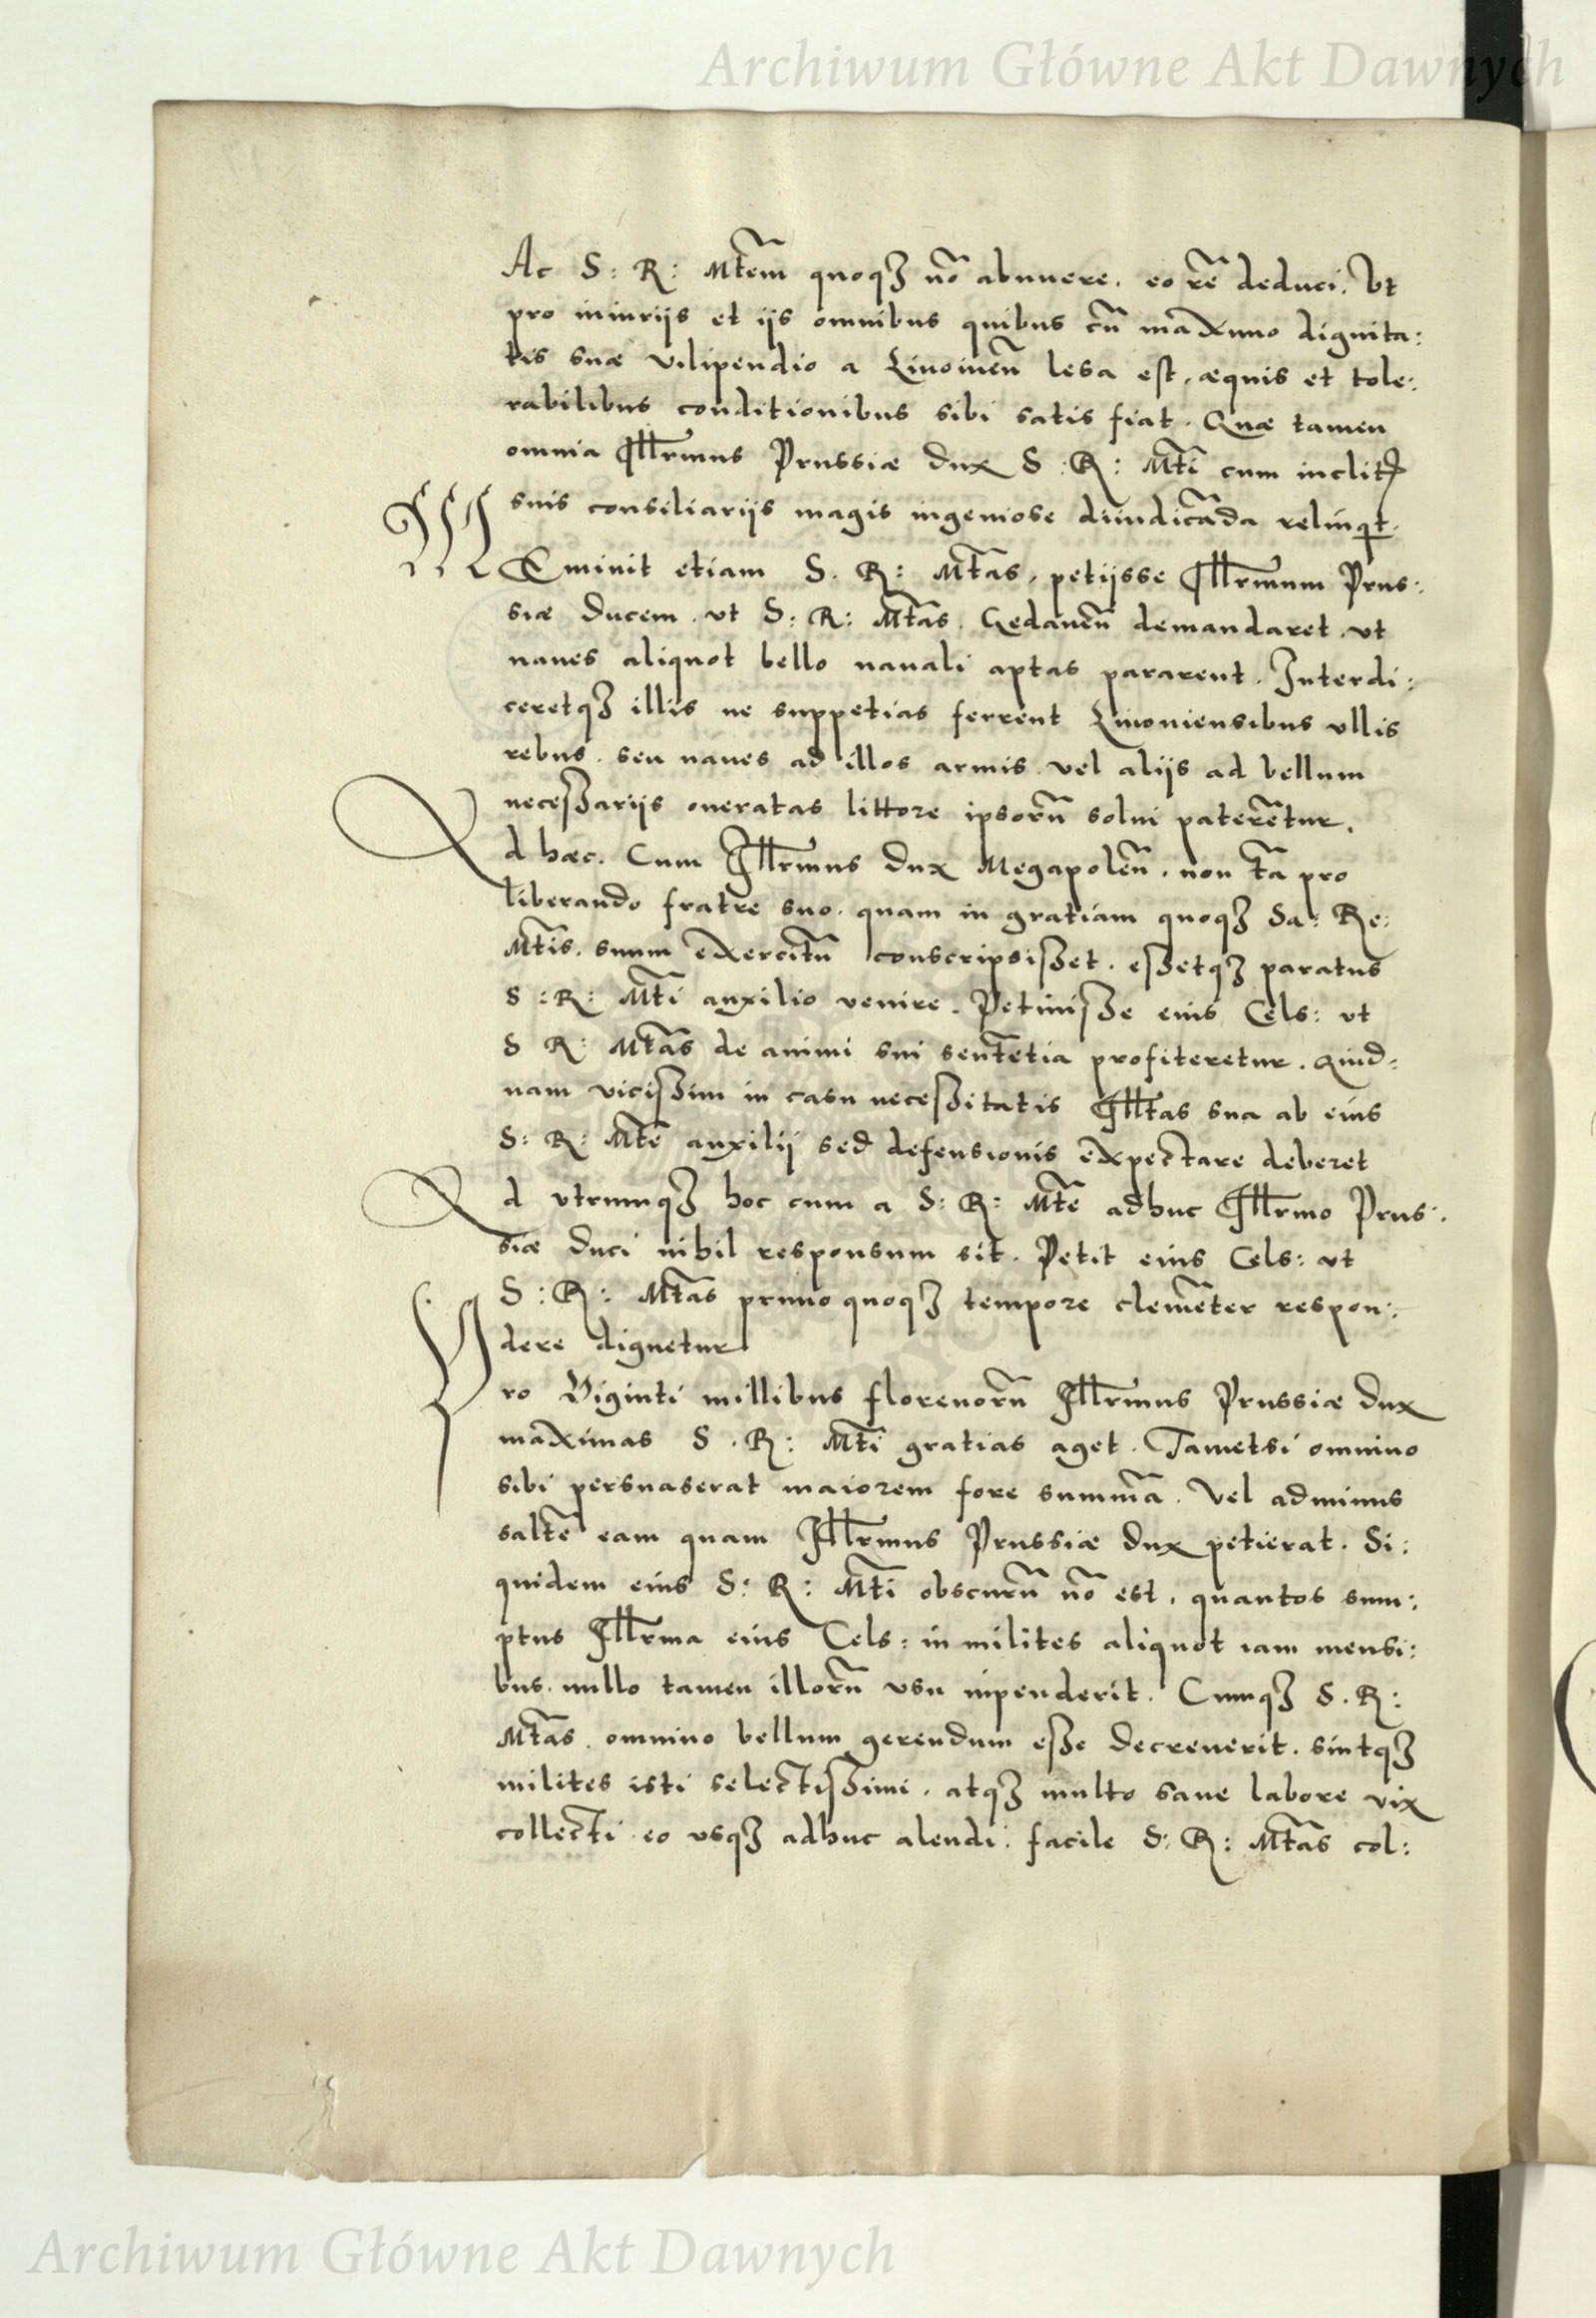 Archiwum Główne Akt Dawnych
Ac S: R: Mtẽm quoqꝫ nõ abnuere. eo rẽ deduci. Vt
pro iniurijs et ijs omnibus quibus cũ maximo dignita:
tis suæ vilipendio a Liuonieñ lesa est, æquis et tole:
rabilibus conditionibus sibi satis fiat. Quæ tamen
omnia Illrmus Prussiæ Dux S: R: Mti cum inclitꝭ
suis consiliarijs magis ingeniose diiudicãda relinqt.
MEminit etiam S. R: Mtas, petijsse Illrmum Prus:
siæ Ducem. vt S: R: Mtas. Gedaneñ demandaret. vt
naues aliquot bello nauali aptas pararent. Interdi:
ceretqꝫ illis ne suppetias ferrent Liuoniensibus vllis
rebus. seu naues ad illos armis vel alijs ad bellum
necessarijs oneratas littore ipsorũ solui paterẽtur.
Ad hæc. Cum Illrmus Dux Megapoleñ. non tã pro
liberando fratre suo. quam in gratiam quoqꝫ Sa: Re:
Mtis. suum exercitũ conscripsisset. essetqꝫ paratus
S: R: Mti auxilio venire. Petiuisse eius Cels: vt
S R: Mtas de animi sui sentẽtia profiteretur. Quid=
nam vicissim in casu necessitatis Illtas sua ab eius
S: R: Mte auxilij sed defensionis expectare deberet
Ad vtrumqꝫ hoc cum a S: R: Mte adhuc Illrmo Prus:
siæ duci nihil responsum sit. Petit eius Cels: vt
S: R: Mtas primo quoqꝫ tempore clemẽter respon:
dere dignetur
Pro Viginti millibus florenorũ Illrmus Prussiæ Dux
maximas S. R: Mti gratias aget. Tametsi omnino
sibi persuaserat maiorem fore summã. Vel adminus
saltẽ eam quam Illrmus Prussiæ Dux petierat. Si:
quidem eius S: R: Mti obscurũ nõ est, quantos sum:
ptus Illrma eius Cels: in milites aliquot iam mensi:
bus. nullo tamen illorũ vsu inpenderit. Cumqꝫ S. R:
Mtas. omnino bellum gerendum esse decreuerit. sintqꝫ
milites isti selectissimi. atqꝫ multo sane labore vix
collecti eo vsqꝫ adhuc alendi. facile S: R: Mtas col:
Archiwum Główne Akt Dawnych